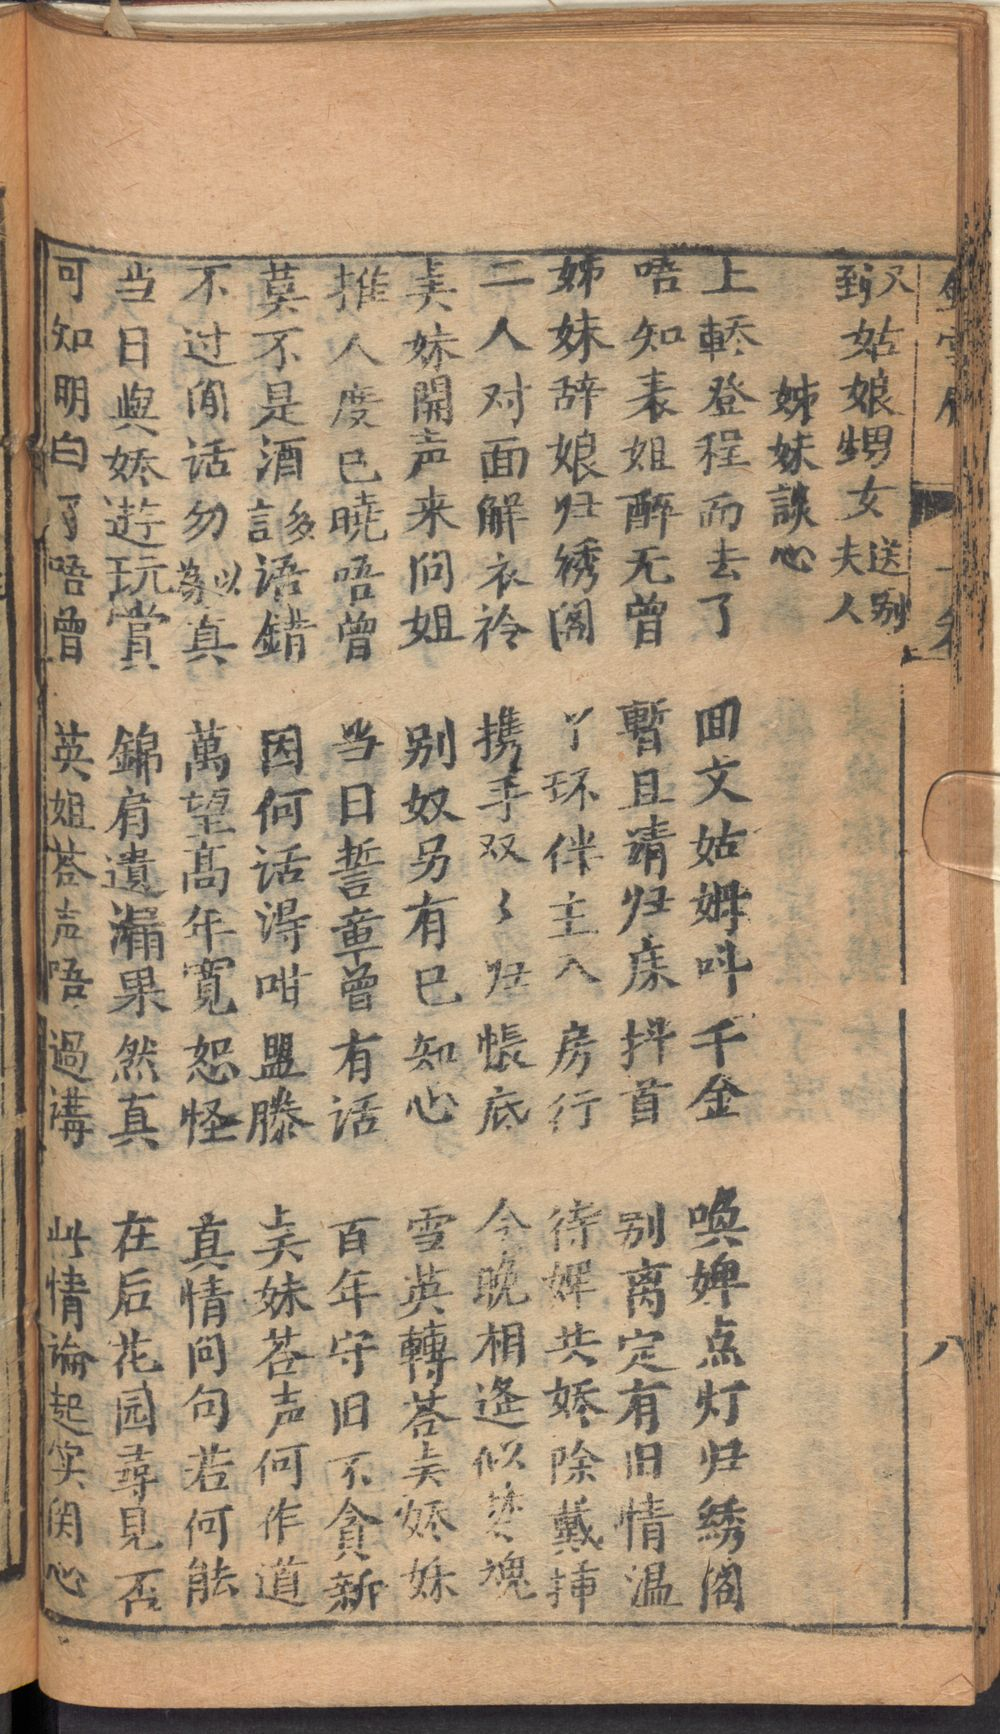 又到姑娘甥女送别夫人
姊妹談心
上轎登程而去了　回文姑姆呌千金　喚婢点灯归綉阁
唔知表姐醉无曾　暫且請归床抖首　别离定有旧情温
姊妹辞娘归綉阁　丫环伴主入房行　待婢共娇除戴揷
二人对面解衣衿　携手双々归帳底　今晚相逢似梦魂
美妹開声来问姐　别奴另有已知心　雪英轉荅美娇妹
推人度已曉唔曾　当日誓章曾有话　百年守旧不貪新
莫不是酒多語错　因何话淂咁盟滕　美妹荅声何作道
不过閒话勿以為真　萬望高年寬恕怪　真情问句若何能
当日與娇遊玩賞　錦肩遺漏果然真　在后花园尋見否
可知明白了唔曾　英姐荅声唔過講　此情論起实関心
八